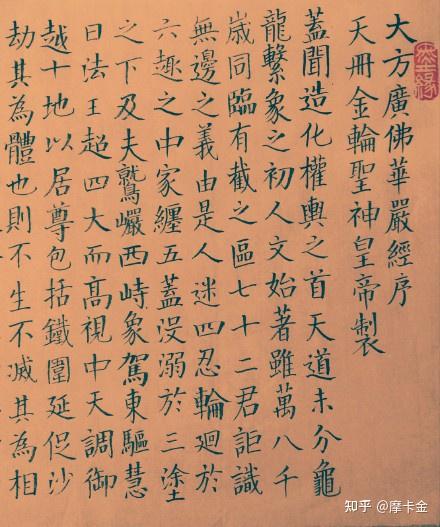 大方廣佛華嚴經序
天冊金輪聖神皇帝製
蓋聞造化權輿之首天道未分龜
龍繫象之初人文始著雖萬八千
嵗同臨有截之區七十二君詎識
無邊之義由是人迷四忍輪迴於
六趣之中家纏五蓋没溺於三塗
之下及夫鷲巗西峙象駕東驅慧
日法王超四大而髙視中天調御
越十地以居尊包括鐵圍延促沙
劫其為體也則不生不滅其為相
知乎 @摩卡金